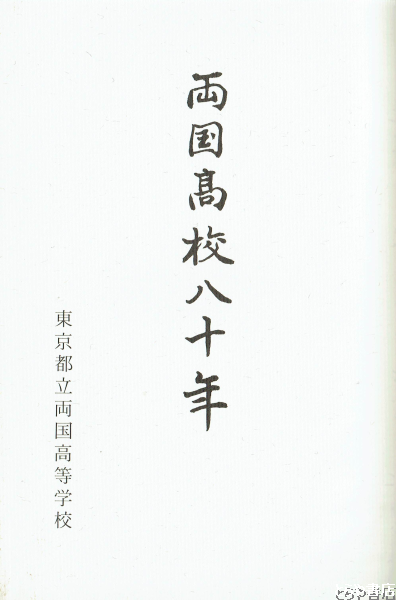 両国髙校八十年
東京都立両国高等学校
とらや書店